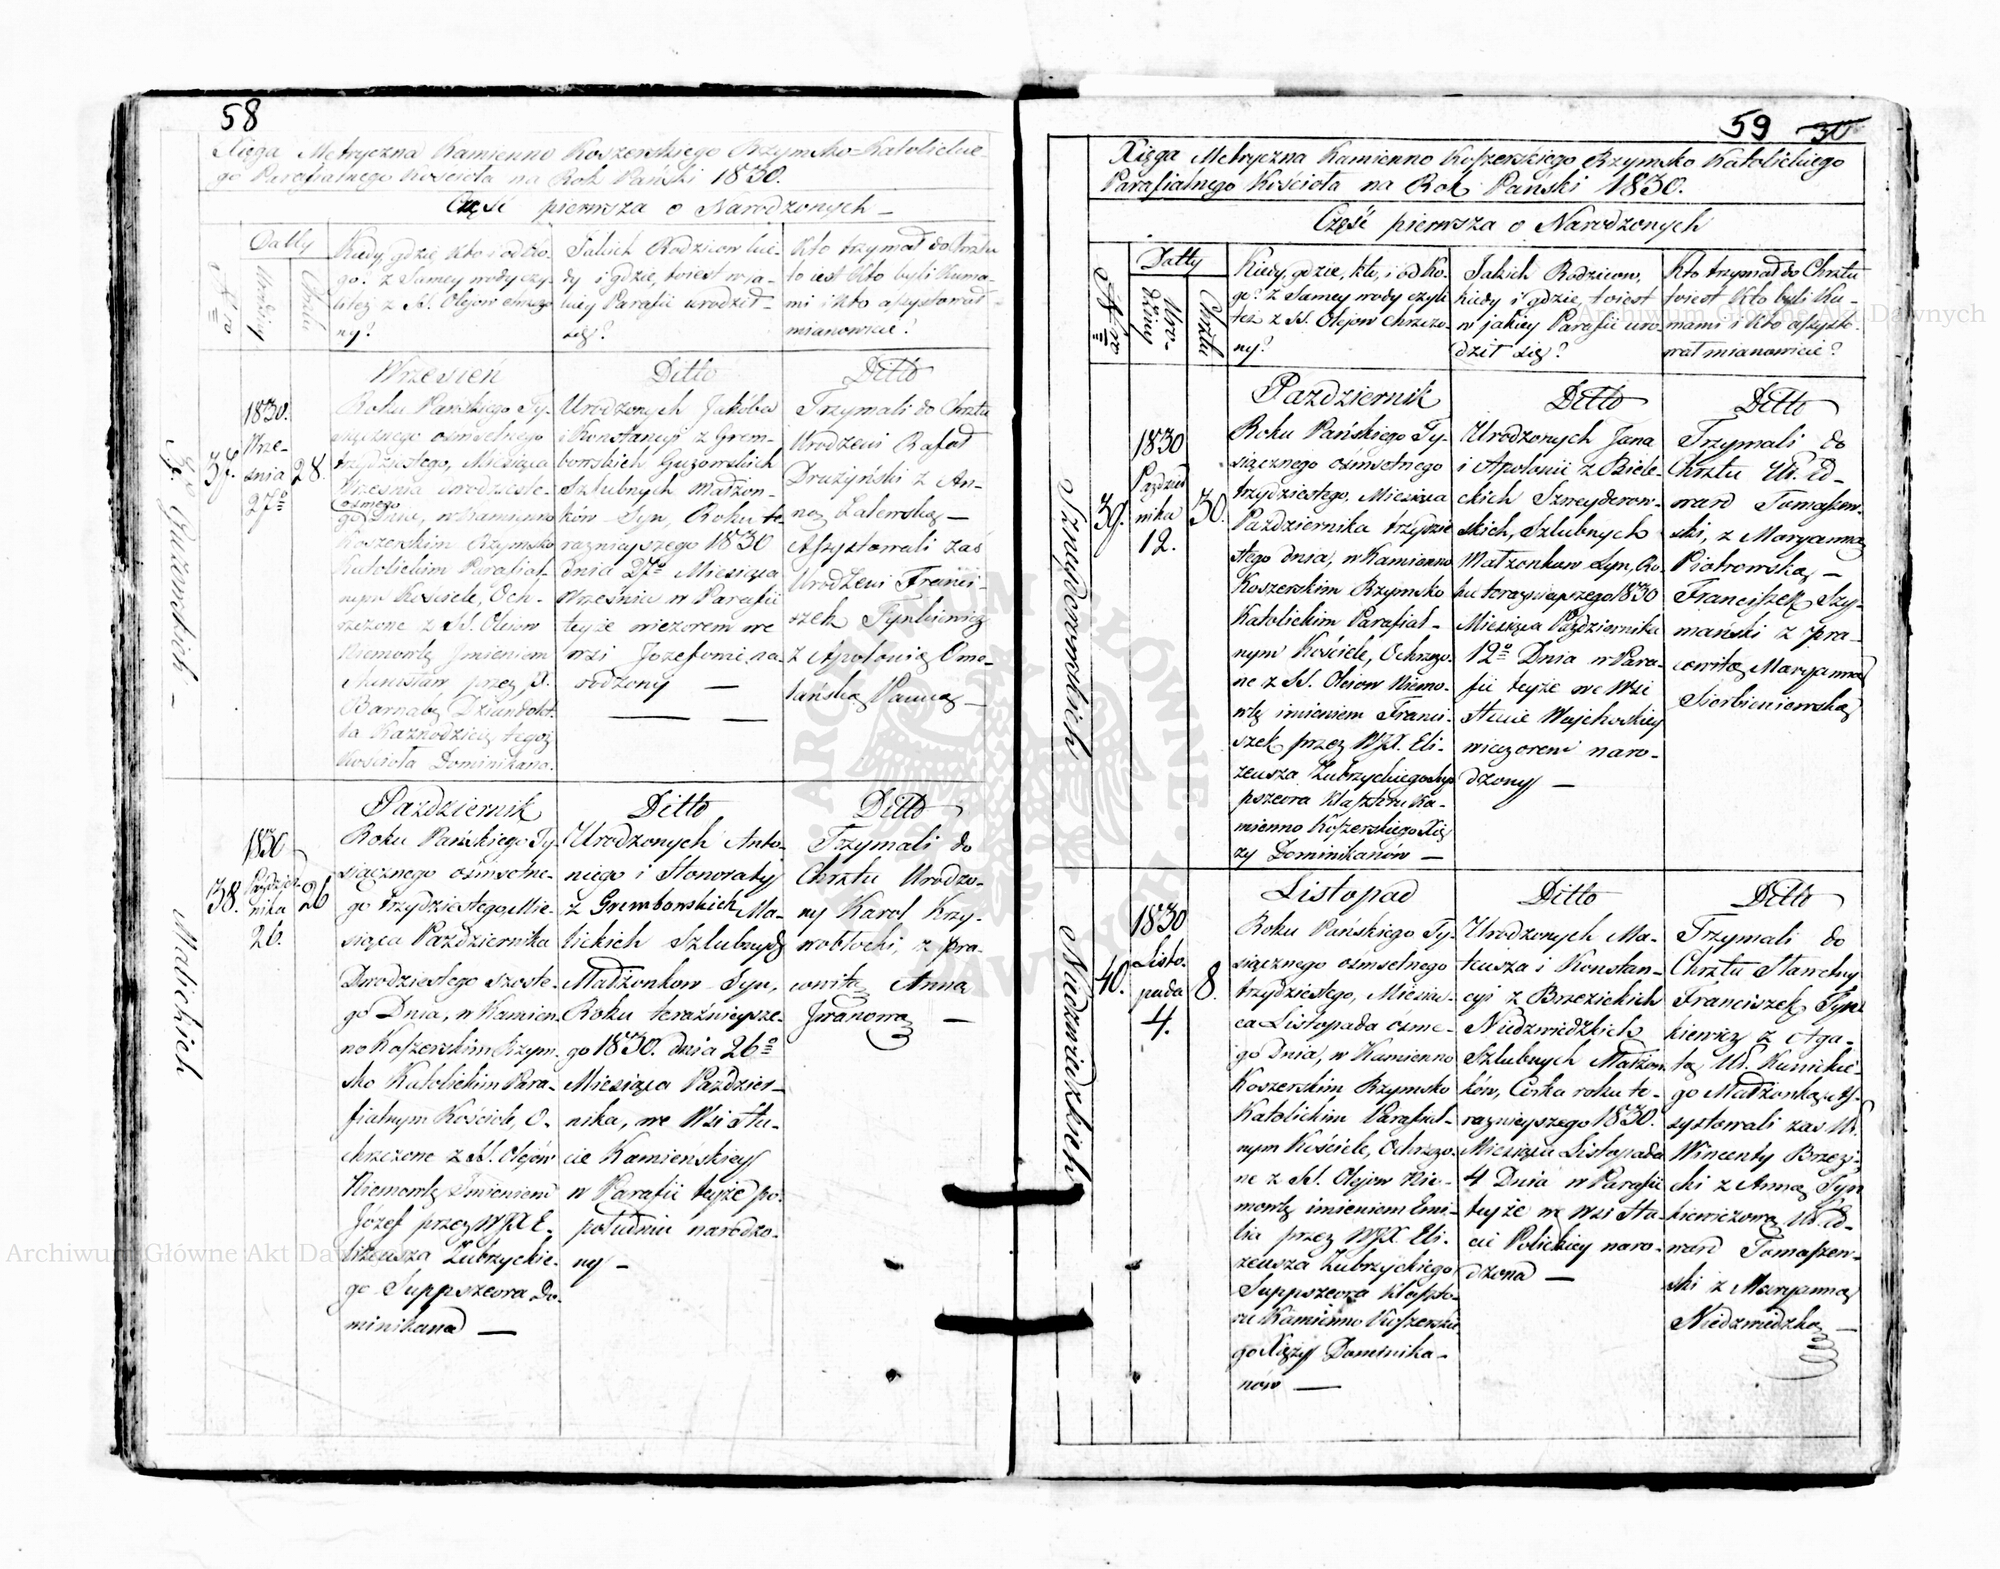 58
Xięga Metryczna Kamienno Koszerskiego Rzymsko-Katolickie-
go Parafialnego Kościoła na Rok Pański 1830.
Część pierwsza o Narodzonych
Datty
Nro
Urodziny
Chrztu
Kiedy, gdzie, kto i od ko-
go? z Samey wody czy-
liteż z SS. Olejow chrzczo
ny?
Jakich Rodzicow kie-
dy i gdzie, toiest w ja-
kiey Parafii urodził
się?
Kto trzymał do Chrztu
to iest Kto byli Kuma-
mi i kto assystował
mianowicie?
37.
Guzowskich
1830.
Wrze-
śnia
27º
28.
Wrzesień
Roku Pańskiego Ty-
siącznego ośmsetnego
trzydziestego, Miesiąca
Wrzesnia dwudzieste-
ósmego
go dnia, w Kamienno
Koszerskim Rzymsko
Katolickim Parafial-
nym Kościele, Och-
rzczone z SS. Olejow
Niemowle Imieniem
przez X.
Barnabę
Kaznodzieię tegoż
Kościoła Dominikana.
Ditto
Urodzonych Jakóba
i Konstancyi z Grem-
bowskich Guzowskich
Szlubnych Małżon-
ków Syn, Roku te-
raznieyszego 1830
dnia 27º Miesiąca
Września w Parafii
teyże wieczorem we
wsi Jozefowie na-
rodzony —
Ditto
Trzymali do Chrztu
Urodzeni Rafał
Drużyński z An-
ną Zalewską —
Assystowali zaś
Urodzeni Franci-
szek Tynkiewicz
z Apolonią Omo-
lańską Panną —
38.
Malickich
1830
Paździer-
nika
26.
26
Październik
Roku Pańskiego Ty-
siącznego ośmsetne-
go trzydziestego, Mie-
siąca Października
Dwudziestego szoste-
go Dnia, w Kamien-
no Koszerskim Rzym-
sko Katolickim Para-
fialnym Kościele, O-
chrzczone z SS. Olejów
Niemowle Imieniem
Józef przez WJX. E-
lizeusza Zubrzyckie-
go Suppszeora Do-
minikana —
Ditto
Urodzonych Anto-
niego i Honoraty
z Grembowskich Ma-
lickich Szlubnych
Małżonkow Syn,
Roku teraźnieysze-
go 1830. dnia 26º
Miesiąca Paździer-
nika, we Wsi Hu-
cie Kamieńskiey
w Parafii teyże po-
południu narodzo-
ny —
Ditto
Trzymali do
Chrztu Urodzo-
ny Karol Krzy-
wobłocki, z pra-
cowitą Anną
Iwanową —
59 30
Xięga Metryczna Kamienno Koszerskiego Rzymsko Katolickiego
Parafialnego Kościoła na Rok Pański 1830.
Część pierwsza o Narodzonych
Datty
Nro
Uro-
dziny
Chrztu
Kiedy, gdzie, kto, i od Ko-
go? z Samey wody czyli
też z SS. Olejow chrzczo-
ny?
Jakich Rodzicow,
kiedy i gdzie, toiest
w jakiey Parafii uro-
dził się?
Kto trzymał do Chrztu
toiest Kto byli Ku-
mami i Kto assysto-
wał mianowicie?
39.
Szneyderowskich
1830
Paździer
nika
12.
30.
Październik
Roku Pańskiego Ty-
siącznego ośmsetnego
trzydziestego, Miesiąca
Października trzydzie
stego dnia, w Kamienno
Koszerskim Rzymsko
Katolickim Parafial-
nym Kościele, Ochrzczo-
ne z SS. Olejow Niemo-
wle imieniem Franci-
szek przez WJX. Eli-
zeusza Zubrzyckiego Sup
pszeora Klasztoru Ka-
mienno Koszerskiego Xię
ży Dominikanów —
Ditto
Urodzonych Jana
i Apolonii z Biele-
ckich Szneyderow-
skich, Szlubnych
Małżonkow Syn, Ro-
ku teraznieyszego 1830
Miesiąca Października
12º Dnia w Para-
fii teyże we Wsi
Hucie
wieczorem naro-
dzony —
Ditto
Trzymali do
Chrztu Ur. Ed-
ward Tomaszew-
ski, z Maryanną
Piotrowską —
Franciszek Szy-
mański z pra-
cowitą Maryanną
40.
Niedzwiedzkich
1830
Listo-
pada
4.
8.
Listopad
Roku Pańskiego Ty-
siącznego ośmsetnego
trzydziestego, Miesią-
ca Listopada ósme-
go Dnia, w Kamienno
Koszerskim Rzymsko
Katolickim Parafial-
nym Kościele, Ochrzczo-
ne z SS. Olejow Nie-
mowle imieniem Emi-
lia przez WJX. Eli-
zeusza Zubrzyckiego
Suppszeora Klaszto-
ru Kamienno Koszerskie
go Xięży Dominika-
now —
Ditto
Urodzonych Ma-
teusza i Konstan-
cyi z Brzezickich
Niedzwiedzkich
Szlubnych Małżon-
ków, Córka roku te-
raznieyszego 1830.
Miesiąca Listopada
4 Dnia w Parafii
teyże we wsi Hu-
cie Polickiey naro-
dzona —
Ditto
Trzymali do
Chrztu
Franciszek Tyn-
kiewicz z Aga-
tą Ur. Kunickie-
go Małżonką, As-
systowali zas Ur.
Wincenty Brzezi-
cki z Anną Tyn
kiewiczową, Ur. Ed-
ward Tomaszew-
ski z Maryanną
Niedzwiedzką —
Archiwum Główne Akt Dawnych
Archiwum Główne Akt Dawnych
ARCHIWUM GŁÓWNE AKT DAWNYCH